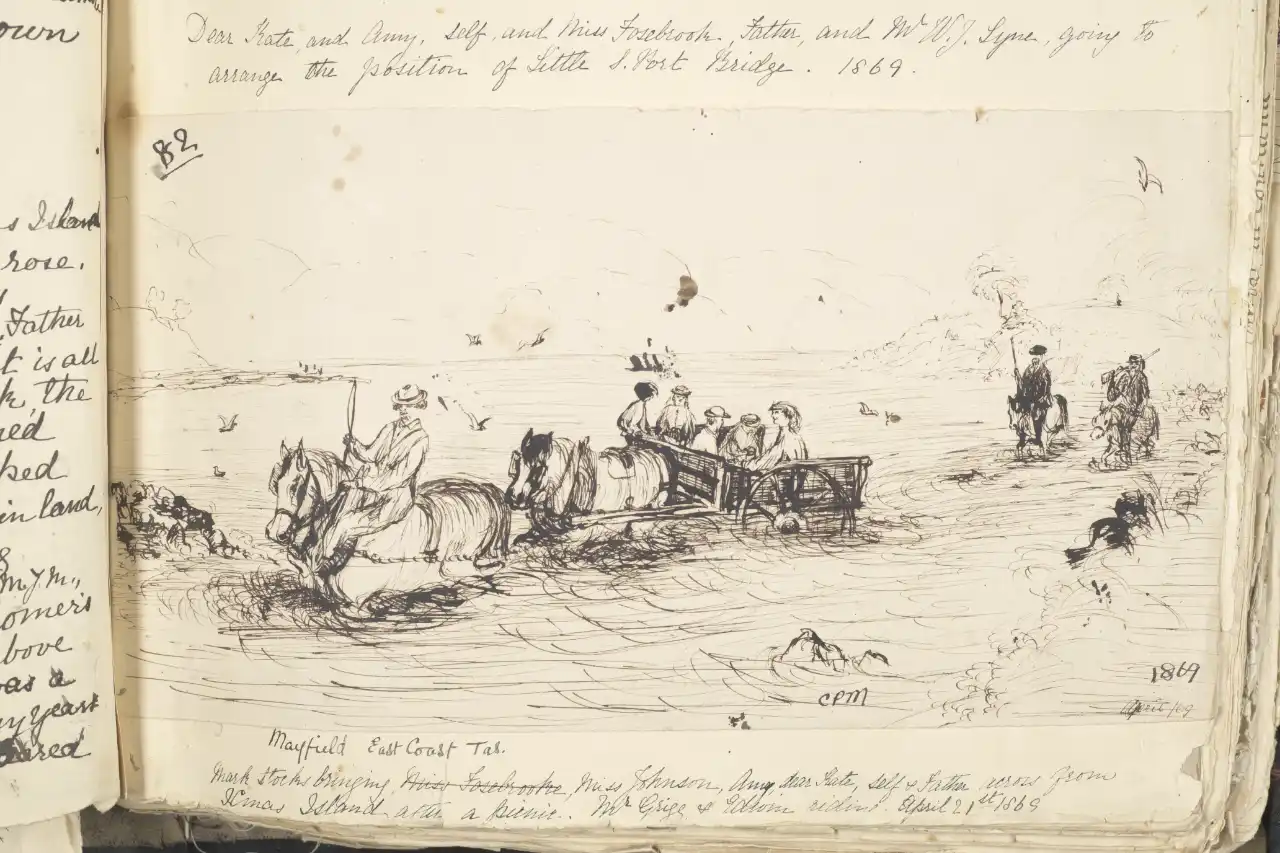 own
s Island
rose.
Father
t is all
k, the
ned
ked
in land,
m J m.,
omer's
bove
as a
ny years
ared
Dear Kate and Amy, self, and Miss Fosebrook, Father, and Mr W. J. Lyne, going to
arrange the position of Little S. Port Bridge. 1869.
82
CPM
1869
April /69
Mayfield East Coast Tas.
Mark Stocks bringing Miss Fosebrooke, Miss Johnson, Amy, dear Kate, self & Father across from
Xmas Island after a picnic. Mr Grigg & Edwin riding. April 21st 1869